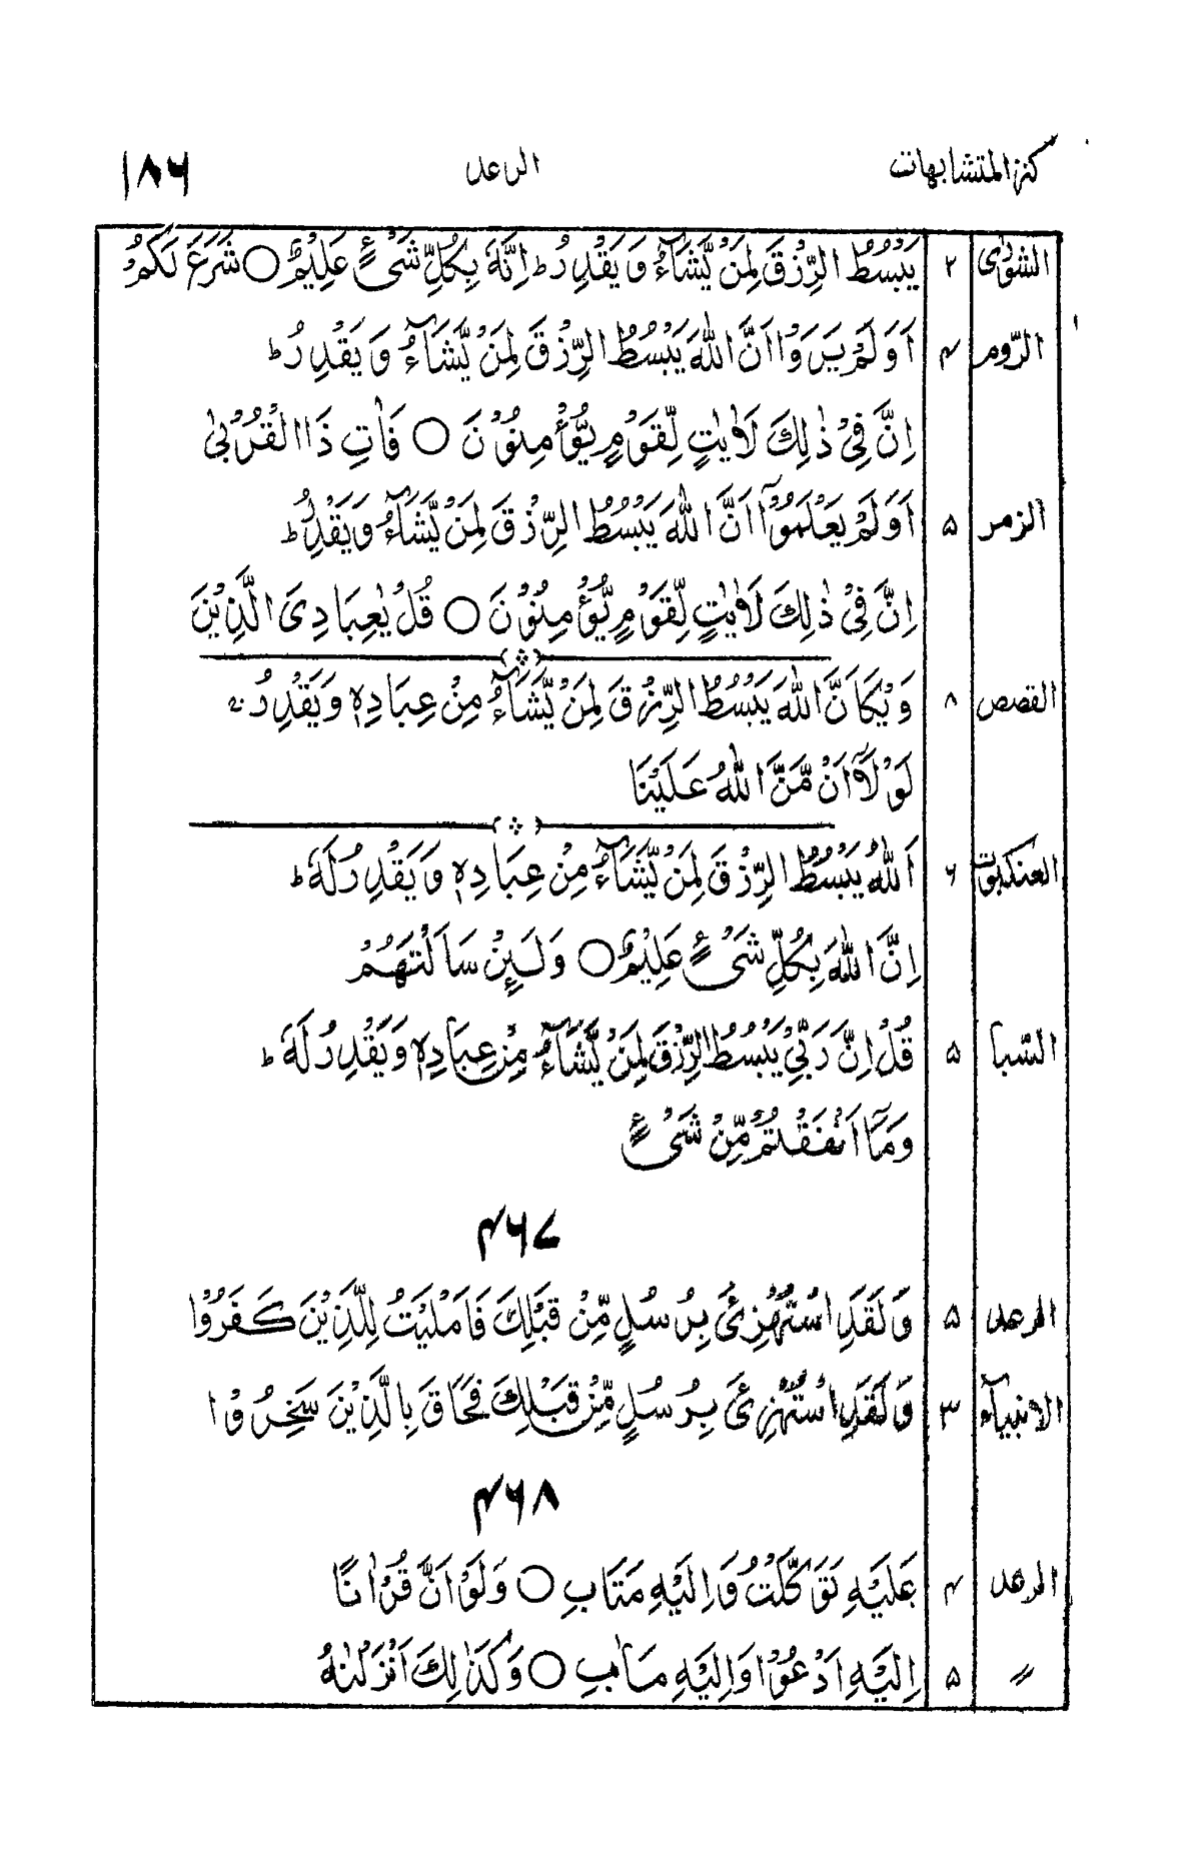 كنز المتشابهات الرعد ۱۸۶
الشورٰى ۲ يَبْسُطُ الرِّزْقَ لِمَنْ يَّشَآءُ وَ يَقْدِرُ ط اِنَّهٗ بِكُلِّ شَىْءٍ عَلِيْمٌ ○ شَرَعَ لَكُمْ
الرّوم ۴ اَوَ لَمْ يَرَوْا اَنَّ اللّٰهَ يَبْسُطُ الرِّزْقَ لِمَنْ يَّشَآءُ وَ يَقْدِرُ ط
اِنَّ فِىْ ذٰلِكَ لَاٰيٰتٍ لِّقَوْمٍ يُّؤْمِنُوْنَ ○ فَاٰتِ ذَا الْقُرْبٰى
الزمر ۵ اَوَ لَمْ يَعْلَمُوْٓا اَنَّ اللّٰهَ يَبْسُطُ الرِّزْقَ لِمَنْ يَّشَآءُ وَ يَقْدِرُ ط
اِنَّ فِىْ ذٰلِكَ لَاٰيٰتٍ لِّقَوْمٍ يُّؤْمِنُوْنَ ○ قُلْ يٰعِبَادِىَ الَّذِيْنَ
القصص ۸ وَيْكَاَنَّ اللّٰهَ يَبْسُطُ الرِّزْقَ لِمَنْ يَّشَآءُ مِنْ عِبَادِهٖ وَ يَقْدِرُ ج
لَوْ لَآ اَنْ مَّنَّ اللّٰهُ عَلَيْنَا
العنكبوت ۶ اَللّٰهُ يَبْسُطُ الرِّزْقَ لِمَنْ يَّشَآءُ مِنْ عِبَادِهٖ وَ يَقْدِرُ لَهٗ ط
اِنَّ اللّٰهَ بِكُلِّ شَىْءٍ عَلِيْمٌ ○ وَ لَئِنْ سَاَلْتَهُمْ
السّبا ۵ قُلْ اِنَّ رَبِّىْ يَبْسُطُ الرِّزْقَ لِمَنْ يَّشَآءُ مِنْ عِبَادِهٖ وَ يَقْدِرُ لَهٗ ط
وَمَآ اَنْفَقْتُمْ مِّنْ شَىْءٍ
۴۶۷
الرعد ۵ وَ لَقَدِ اسْتُهْزِئَ بِرُسُلٍ مِّنْ قَبْلِكَ فَاَمْلَيْتُ لِلَّذِيْنَ كَفَرُوْا
الانبيآء ۳ وَ لَقَدِ اسْتُهْزِئَ بِرُسُلٍ مِّنْ قَبْلِكَ فَحَاقَ بِالَّذِيْنَ سَخِرُوْا
۴۶۸
الرعد ۴ عَلَيْهِ تَوَكَّلْتُ وَ اِلَيْهِ مَتَابِ ○ وَ لَوْ اَنَّ قُرْاٰنًا
〃 ۵ اِلَيْهِ اَدْعُوْا وَ اِلَيْهِ مَاٰبِ ○ وَ كَذٰلِكَ اَنْزَلْنٰهُ